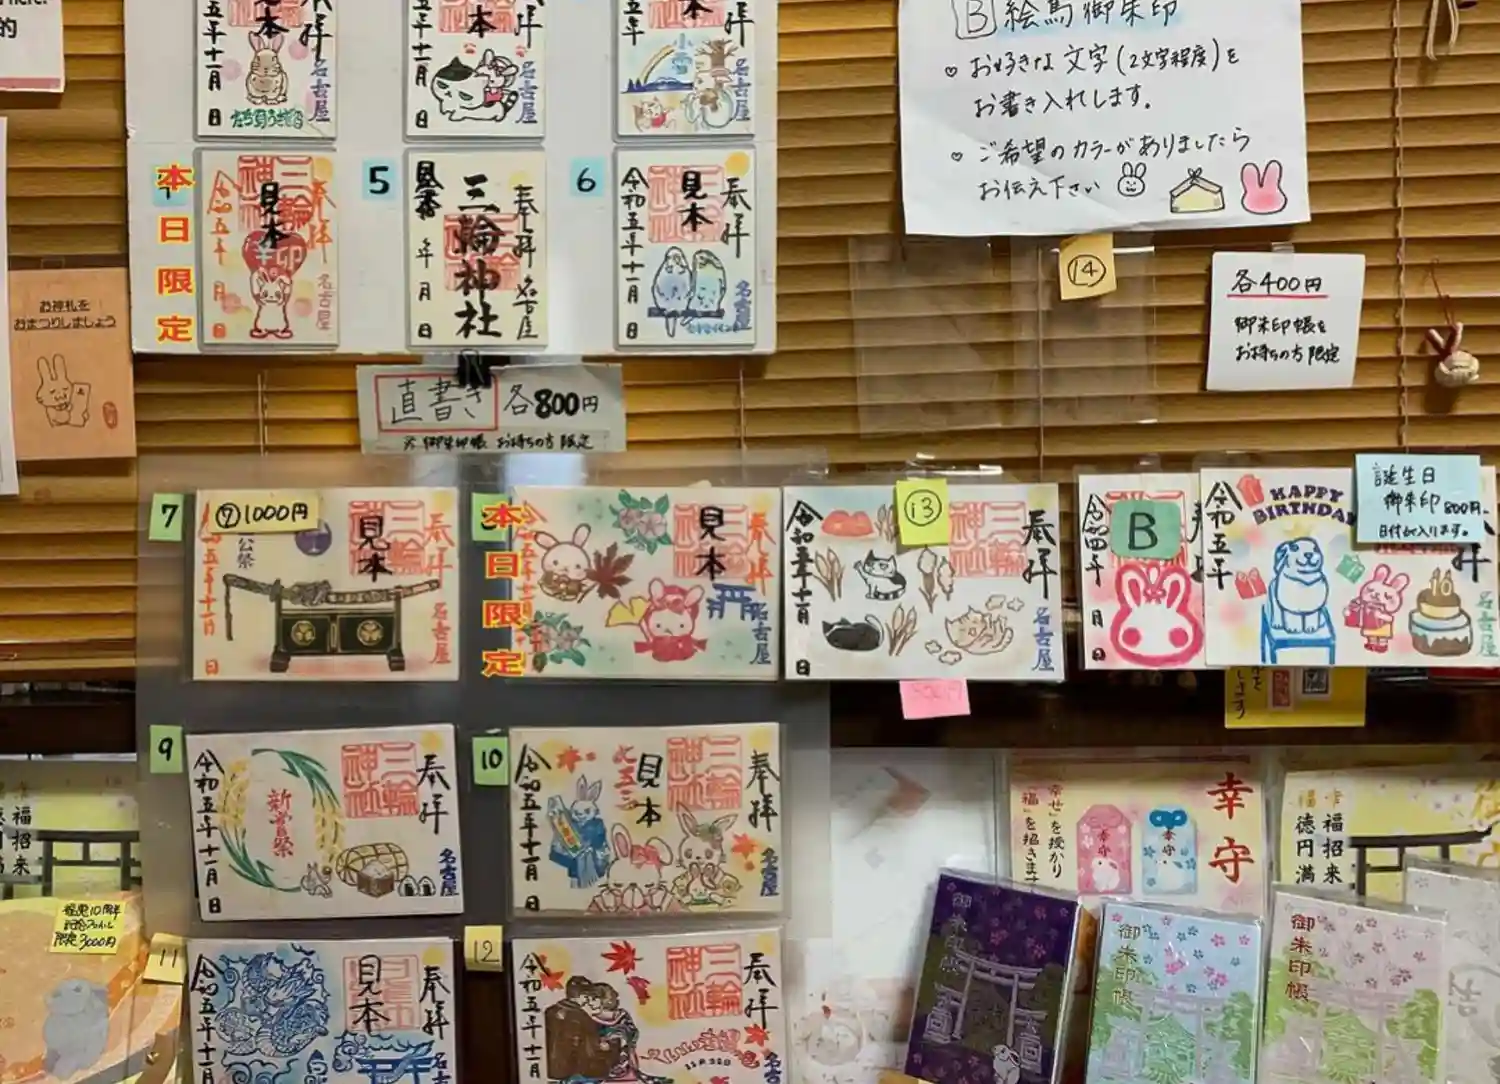 的
奉拝
見本
五年十一月 日
名古屋
奉拝
見本
五年十一月 日
名古屋
奉拝
本
五年
日
名古屋
B 絵馬御朱印
♡ お好きな文字(2文字程度)を
お書き入れします。
♡ ご希望のカラーがありましたら
お伝え下さい
本日限定
奉拝
三輪神社
見本
辛卯
令和五年
月 日
名古屋
5
奉拝
三輪神社
見本
年 月 日
名古屋
6
奉拝
見本
令和五年十一月 日
名古屋
14
各400円
御朱印帳を
お持ちの方限定
お神札を
おまつりしましょう
直書き 各800円
※御朱印帳 お持ちの方 限定
7
⑦1000円
奉拝
三輪神社
見本
公祭
五年十一月 日
名古屋
本日限定
奉拝
見本
名古屋
13
奉拝
三輪神社
令和五年十一月 日
名古屋
B
令和四年
月 日
HAPPY
BIRTHDAY
令和五年
拝
10
名古屋
誕生日
御朱印 800円
日付が入ります。
9
奉拝
三輪神社
新嘗祭
令和五年十一月 日
名古屋
10
奉拝
三輪神社
見本
七五三
令和五年十一月 日
名古屋
11
奉拝
見本
令和五年十一月
名古
12
奉拝
三輪神社
令和五年十一月
名
幸守
幸せ」を授かり
「福」を招きます
幸守
幸守
幸福招来
福徳円満
福招来
徳円満
限定3000円
御朱印帳
御朱印帳
御朱印帳